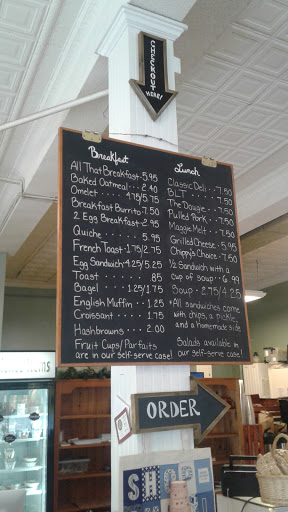 CHECKOUT
HERE!
Breakfast
All That Breakfast 5.95
Baked Oatmeal... 2.40
Omelet .... 4.75/5.75
Breakfast Burrito 7.50
2 Egg Breakfast 2.95
Quiche ..... 5.95
French Toast 1.75/2.75
Egg Sandwich 4.25/5.25
Toast ...... .85
Bagel ..... 1.25/1.75
English Muffin .... 1.25
Croissant .... 1.75
Hashbrowns ... 2.00
Fruit Cups/Parfaits
are in our self-serve case!
Lunch
Classic Deli ... 7.50
BLT ..... 7.50
The Dougie .. 7.50
Pulled Pork .. 7.50
Maggie Melt .. 7.50
Grilled Cheese .. 5.95
Chippy's Choice .. 7.50
1/2 Sandwich with a
cup of soup . 6.99
Soup .. 2.75/4.25
*All sandwiches come
with chips, a pickle,
and a homemade side
Salads available in
our self-serve case!
ORDER
SHOP